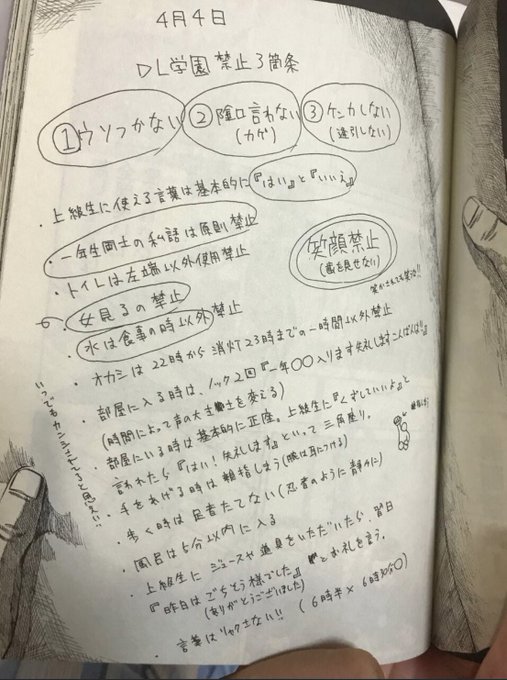 4月4日
DL学園 禁止3箇条
①ウソつかない ②陰口言わない ③ケンカしない
(カゲ) (逢引しない)
・上級生に使える言葉は基本的に『はい』と『いいえ』
・一年生同士の私語は原則禁止
・トイレは左端以外使用禁止
笑顔禁止
(歯を見せない)
笑かされても笑うな!!
・女見るの禁止
・水は食事の時以外禁止
・オカシは22時から消灯23時までの一時間以外禁止
・部屋に入る時は、ノック2回『一年〇〇入ります失礼しますこんばんは!!』
(時間によって声の大きさを変える)
・部屋にいる時は基本的に正座。上級生に『くずしていいよ』と
言われたら『はい!失礼します』といって三角座り。
・手をあげる時は親指しまう(腕は耳につける)
・歩く時は足音たてない(忍者のように静かに)
・風呂は5分以内に入る
・上級生にジュースや道具をいただいたら、翌日
『昨日はごちそう様でした』とお礼を言う。
(ありがとうございました)
・言葉はリャクさない!! (6時半× 6時30分〇)
いつでもカンシされてると思え!!